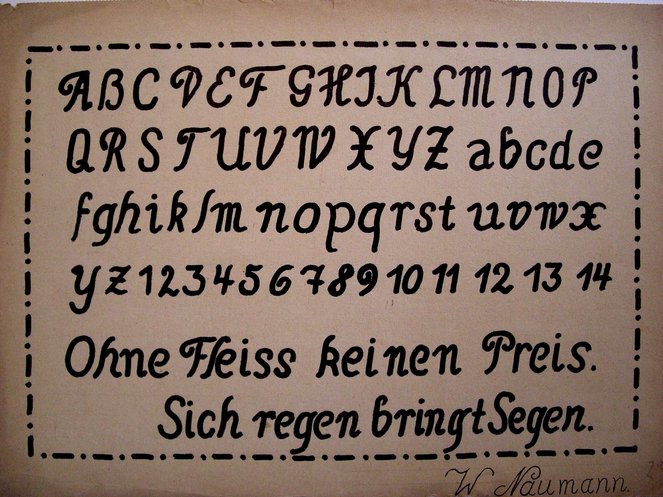 ABCDEFGHIKLMNOP
QRSTUVWXYZ abcde
fghiklmnopqrst uvwx
yz 1 2 3 4 5 6 7 8 9 10 11 12 13 14
Ohne Fleiss keinen Preis.
Sich regen bringt Segen.
W Naumann.